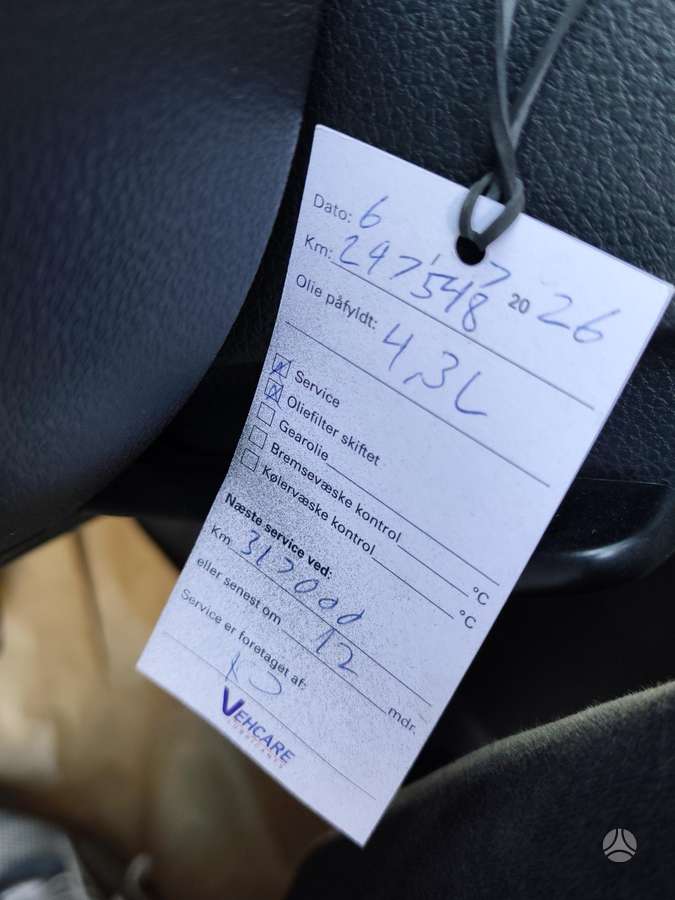 Dato: 6 / 7 20 26
Km: 297548
Olie påfyldt: 4,3L
Service
Oliefilter skiftet
Gearolie
Bremsevæske kontrol °C
Kølervæske kontrol °C
Næste service ved:
Km 317000
eller senest om 12 mdr.
Service er foretaget af:
VEHCARE